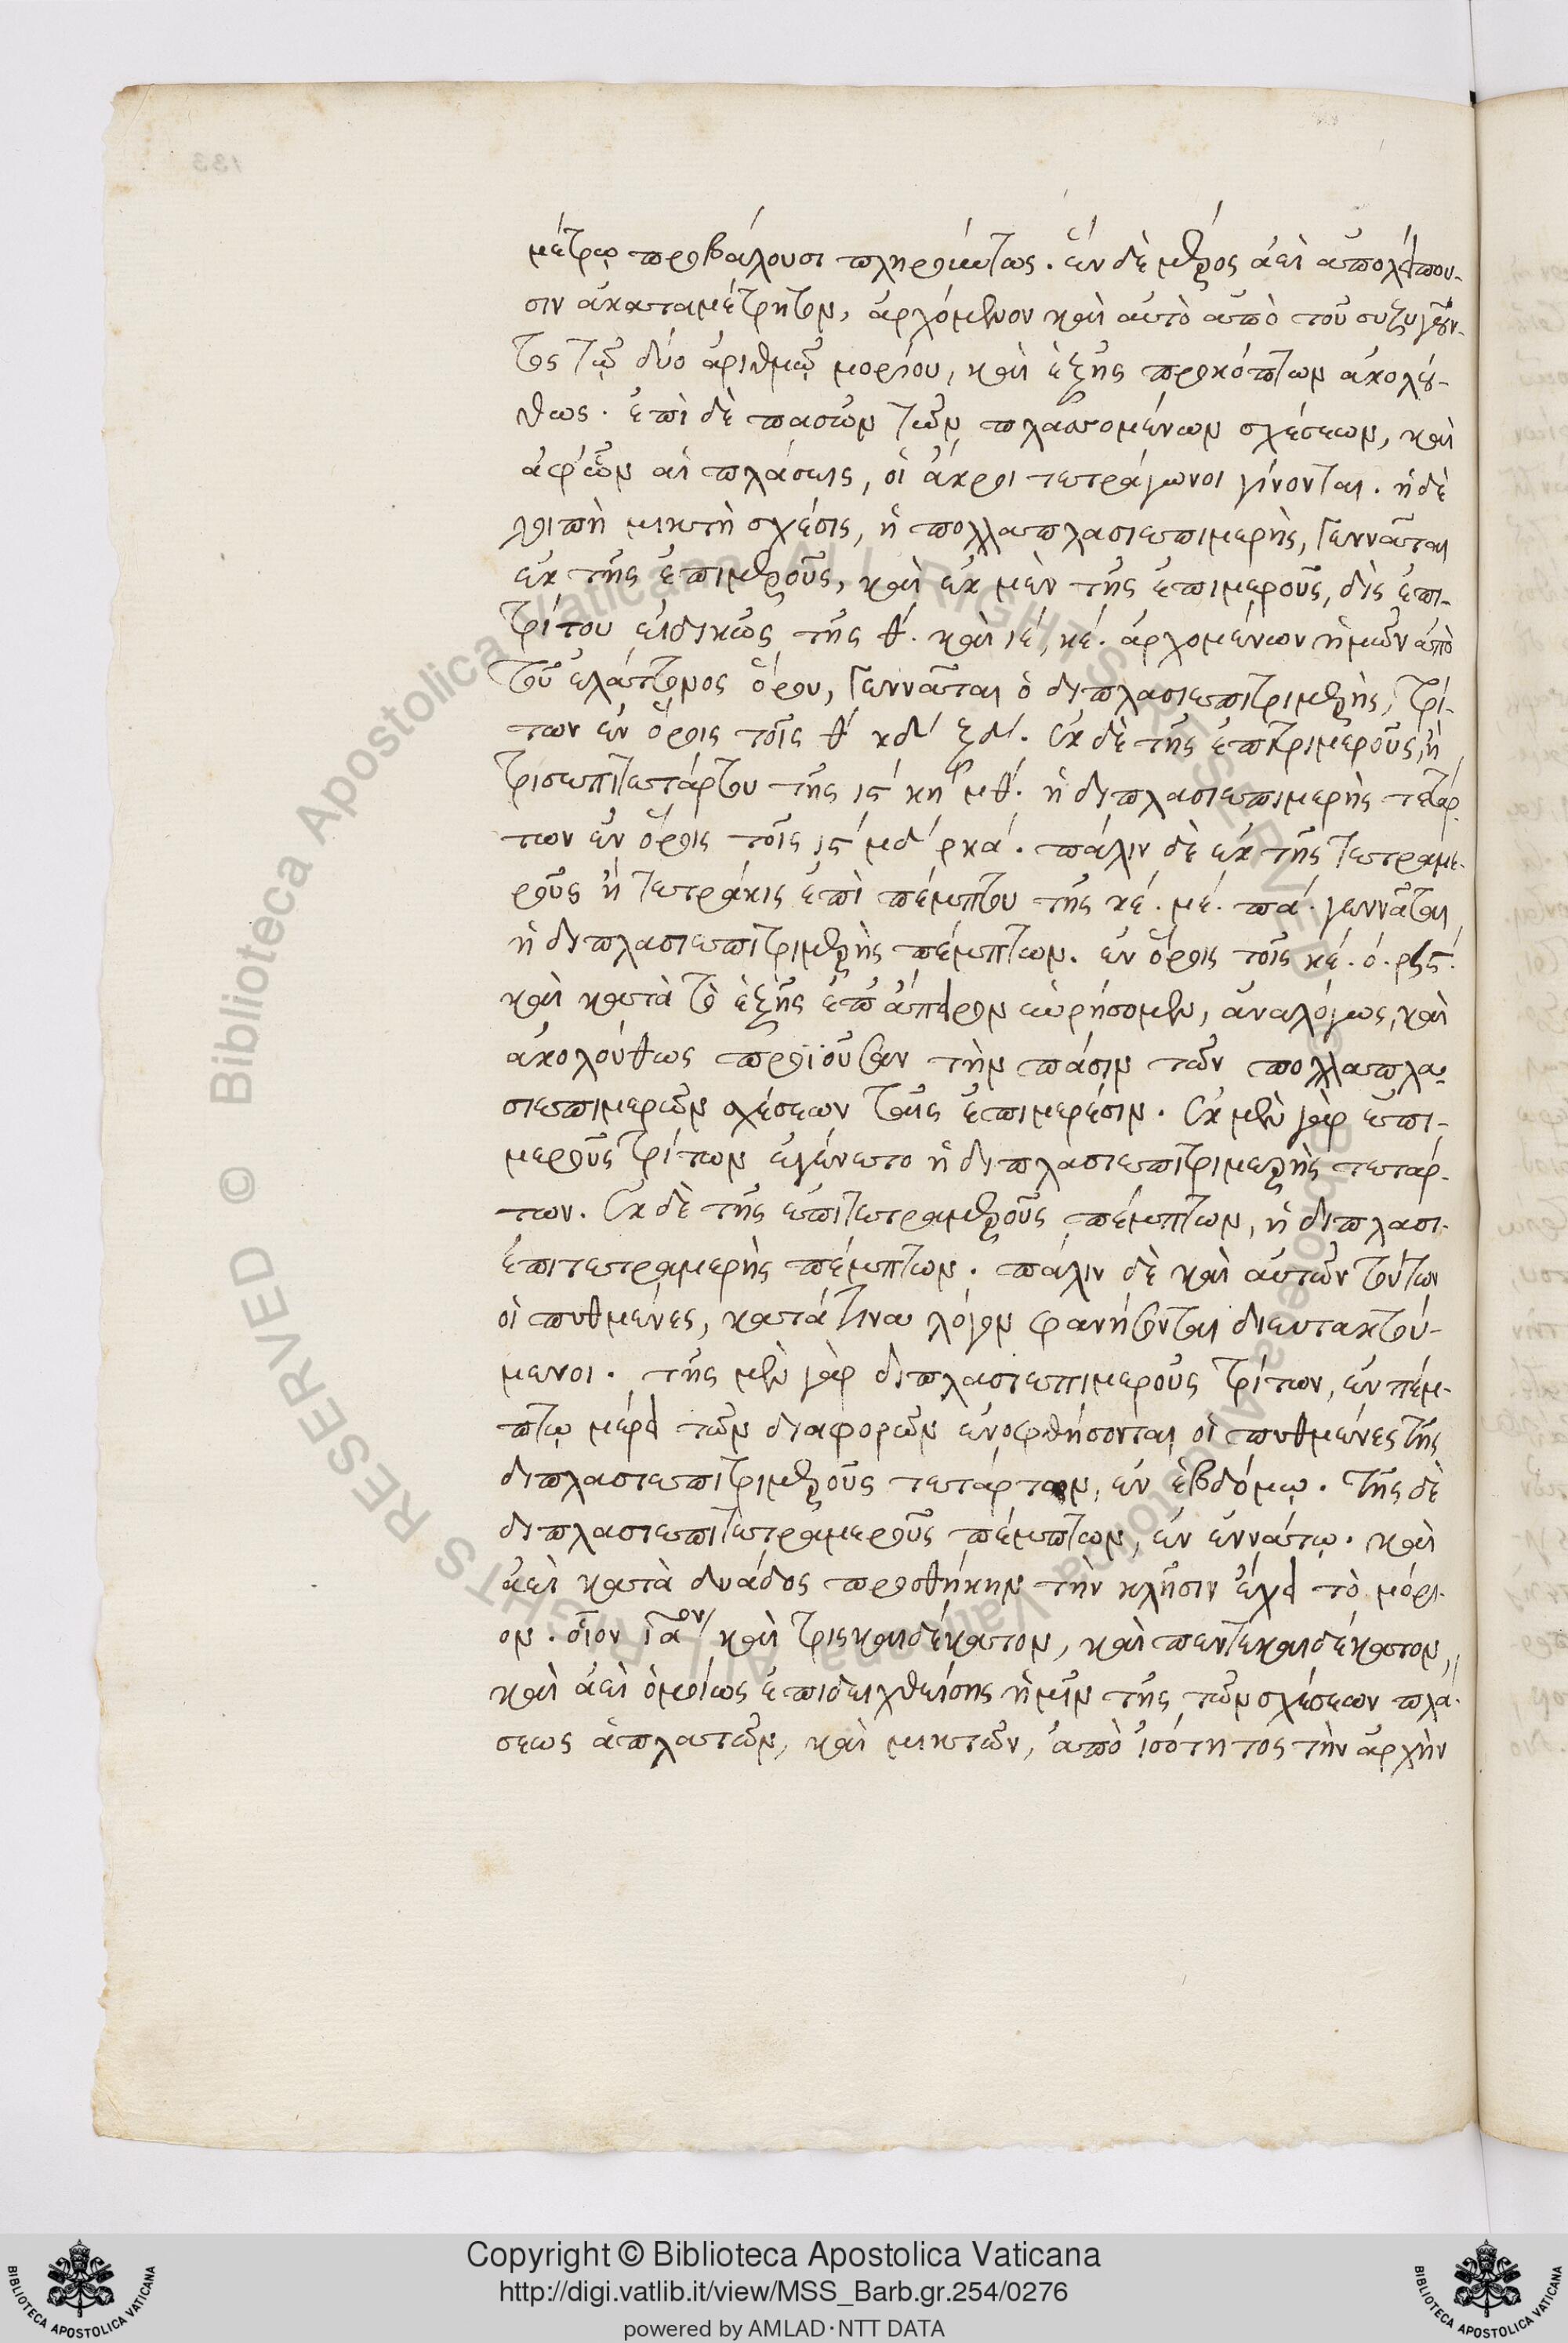 μέτρῳ προβάλουσι πληρούντως. ἓν δὲ μέρος ἀεὶ ἀπολείπου-
σιν ἀκαταμέτρητον, ἀρχόμενον καὶ αὐτὸ ἀπὸ τοῦ συζυγοῦν-
τος τῷ δύο ἀριθμῷ μορίου, καὶ ἑξῆς προκόπτων ἀκολού-
θως. ἐπὶ δὲ πασῶν τῶν πλασσομένων σχέσεων, καὶ
ἀφ' ὧν αἱ πλάσεις, οἱ ἄκροι τετράγωνοι γίνονται. ἡ δὲ
λοιπὴ μικτὴ σχέσις, ἡ πολλαπλασιεπιμερὴς, γεννᾶται
ἐκ τῆς ἐπιμεροῦς, καὶ ἐκ μὲν τῆς ἐπιμεροῦς, δὶς ἐπι-
τρίτου εἰδικῶς τῆς θ. καὶ ιέ, κέ. ἀρχομένων ἡμῶν ἀπὸ
τοῦ ἐλάττονος ὅρου, γεννᾶται ὁ διπλασιεπιτριμερὴς, τρί-
των ἐν ὅροις τοῖς θ κδ ξδ. ἐκ δὲ τῆς ἐπιτριμεροῦς, ἢ
τρισεπιτετάρτου τῆς ις κη μθ. ἡ διπλασιεπιμερὴς τετάρ-
των ἐν ὅροις τοῖς ις μδ ρκά. πάλιν δὲ ἐκ τῆς τετραμε-
ροῦς ἢ τετράκις ἐπὶ πέμπτου τῆς κέ. μέ. πά. γεννᾶται
ἡ διπλασιεπιτριμερὴς πέμπτων. ἐν ὅροις τοῖς κέ. ό. ρϟς.
καὶ κατὰ τὸ ἑξῆς ἐπ' ἄπειρον εὑρήσομεν, ἀναλόγως, καὶ
ἀκολούθως προϊοῦσαν τὴν πάσιν τῶν πολλαπλα-
σιεπιμερῶν σχέσεων τοῖς ἐπιμερέσιν. ἐκ μὲν γὰρ ἐπι-
μεροῦς τρίτων ἐγένετο ἡ διπλασιεπιτριμερὴς τετάρ-
των. ἐκ δὲ τῆς ἐπιτετραμεροῦς πέμπτων, ἡ διπλασι-
επιτετραμερὴς πέμπτων. πάλιν δὲ καὶ αὐτῶν τούτων
οἱ πυθμένες, κατά τινα λόγον φανήσονται διευτακτού-
μενοι. τῆς μὲν γὰρ διπλασιεπιμεροῦς τρίτων, ἐν πέμ-
πτῳ μέρει τῶν διαφορῶν ἐνοφθήσονται οἱ πυθμένες τῆς
διπλασιεπιτριμεροῦς τετάρτων, ἐν ἑβδόμῳ. τῆς δὲ
διπλασιεπιτετραμεροῦς πέμπτων, ἐν ἐννάτῳ. καὶ
ἀεὶ κατὰ δυάδος προσθήκην τὴν κλῆσιν ἔχει τὸ μόρι-
ον. οἷον ια<sup>ον</sup> καὶ τρισκαιδέκατον, καὶ πεντεκαιδέκατον,
καὶ ἀεὶ ὁμοίως ἐπιδειχθείσης ἡμῖν τῆς τῶν σχέσεων πλά-
σεως ἁπλαστῶν, καὶ μικτῶν, ἀπὸ ἰσότητος τὴν ἀρχὴν
133
Biblioteca Apostolica Vaticana ALL RIGHTS RESERVED
© Biblioteca Apostolica Vaticana ALL RIGHTS RESERVED
Copyright © Biblioteca Apostolica Vaticana
http://digi.vatlib.it/view/MSS_Barb.gr.254/0276
powered by AMLAD·NTT DATA
BIBLIOTECA APOSTOLICA VATICANA
BIBLIOTECA APOSTOLICA VATICANA